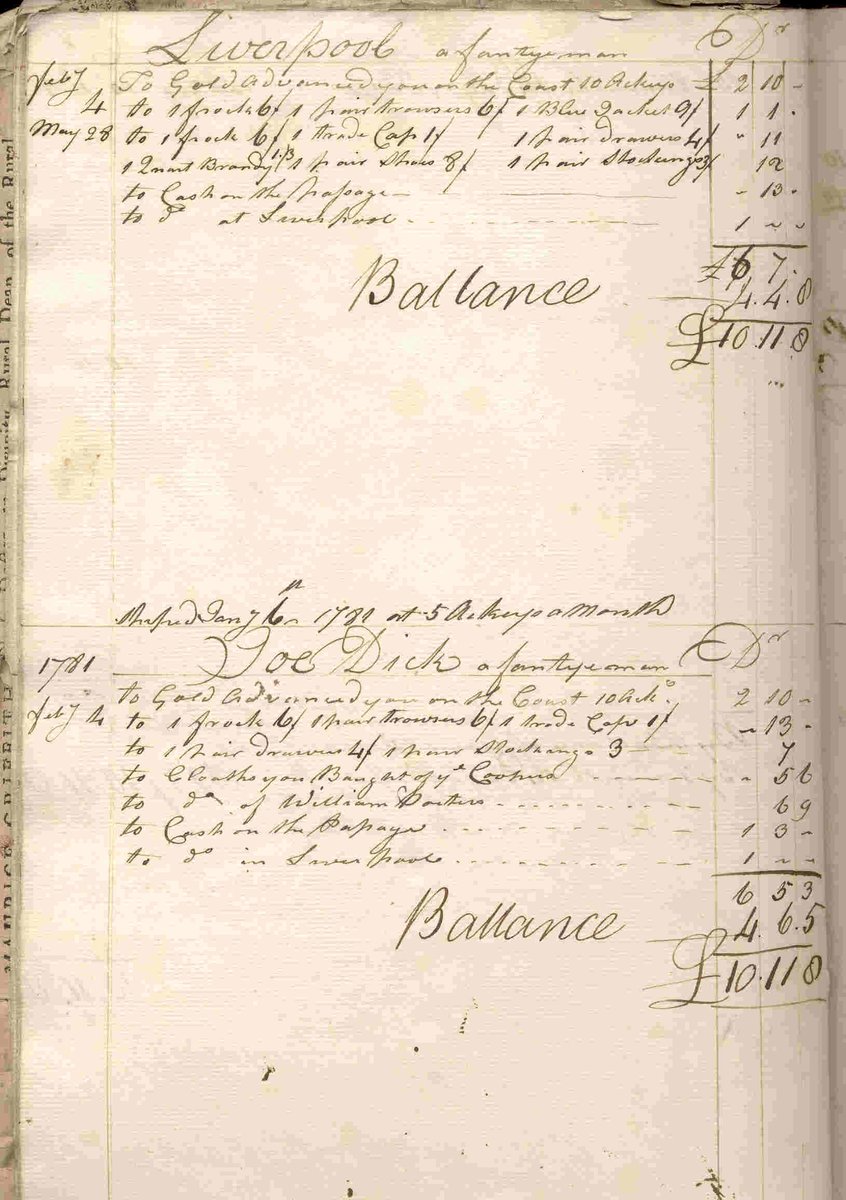 Liverpool a fantyeman Dr
Feby To Gold Advanced you on the Coast 10 Ackeys £ 2 10 -
4 to 1 frock 6/ 1 pair trowsers 6/ 1 Blue Jacket 9/ 1 1 -
May 28 to 1 frock 6/ 1 trade Cap 1/ 1 pair drawers 4/ " 11
1 Quart Brandy 1/3 1 pair Shoes 8/ 1 pair Stockings 3/ 12
to Cash on the passage - 13 -
to do at Liverpool 1 - -
£6 7 .
Ballance 4. 4. 8
£10 . 11 . 8
Janry 6th 1781 at 5 Ackeys a Month
1781 Joe Dick a fantyeman Dr
to Gold Advanced you on the Coast 10 Acks 2 10 -
Feby 4 to 1 frock 6/ 1 pair trowsers 6/ 1 trade Cap 1/ - 13 -
to 1 pair drawers 4/ 1 pair Stockings 3 7
to Cloaths you Baught of ye Coopers " 5 6
to do of William Porters 6 9
to Cash on the Passage 1 3 -
to do in Liverpool 1 - -
6 5 3
Ballance 4. 6. 5
£10 . 11 8
Rural Dean, of the Rural